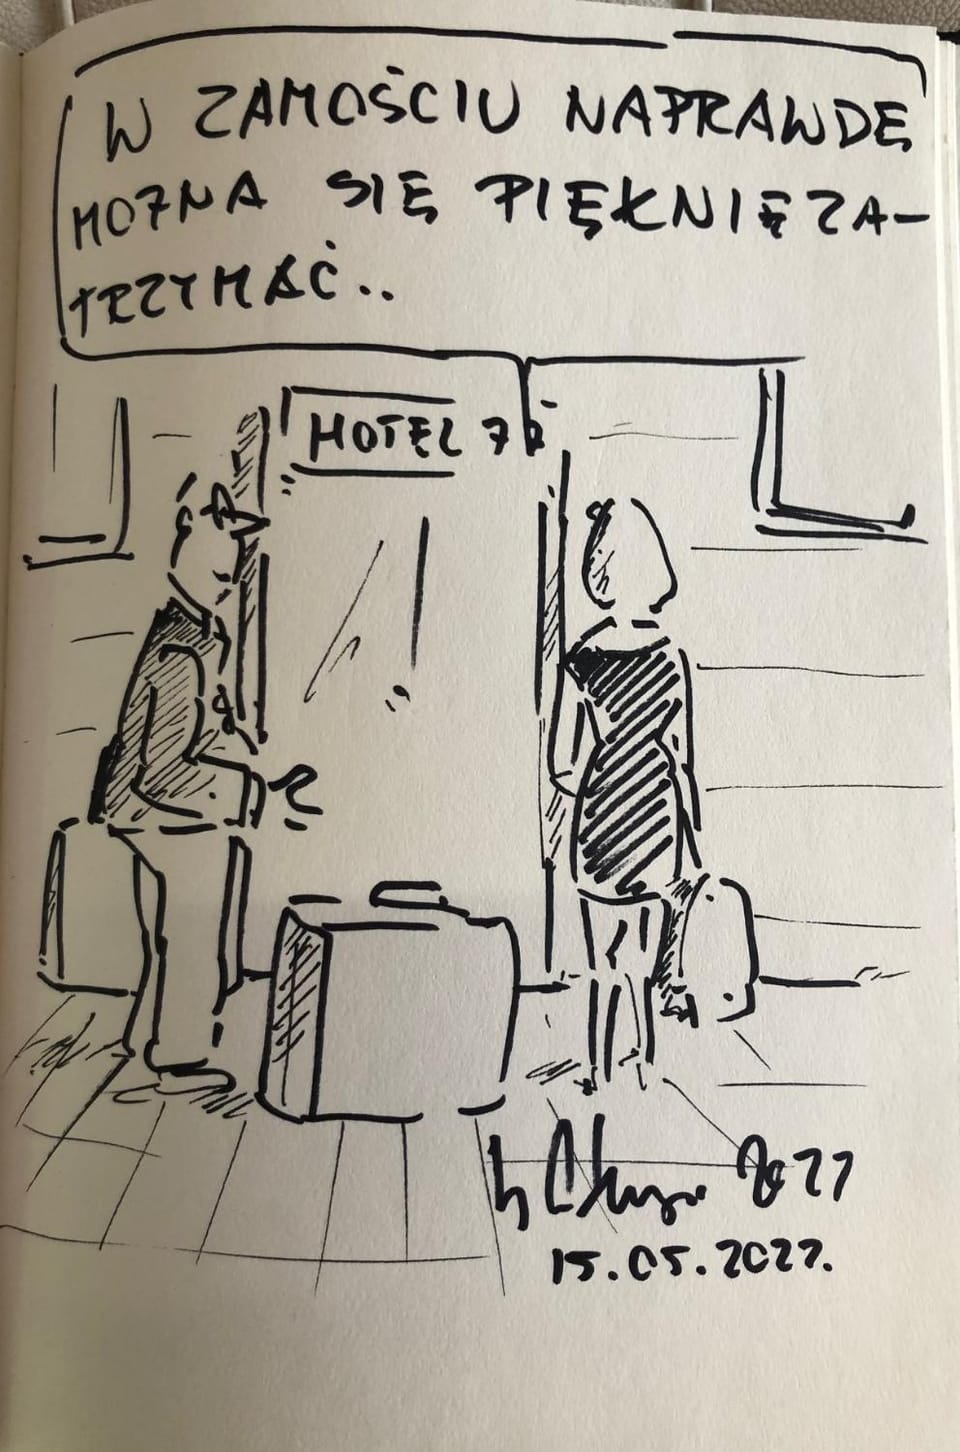 W ZAMOŚCIU NAPRAWDĘ
MOŻNA SIĘ PIĘKNIĘ ZA-
TRZYMAĆ..
HOTEL
2022
15.05.2022.